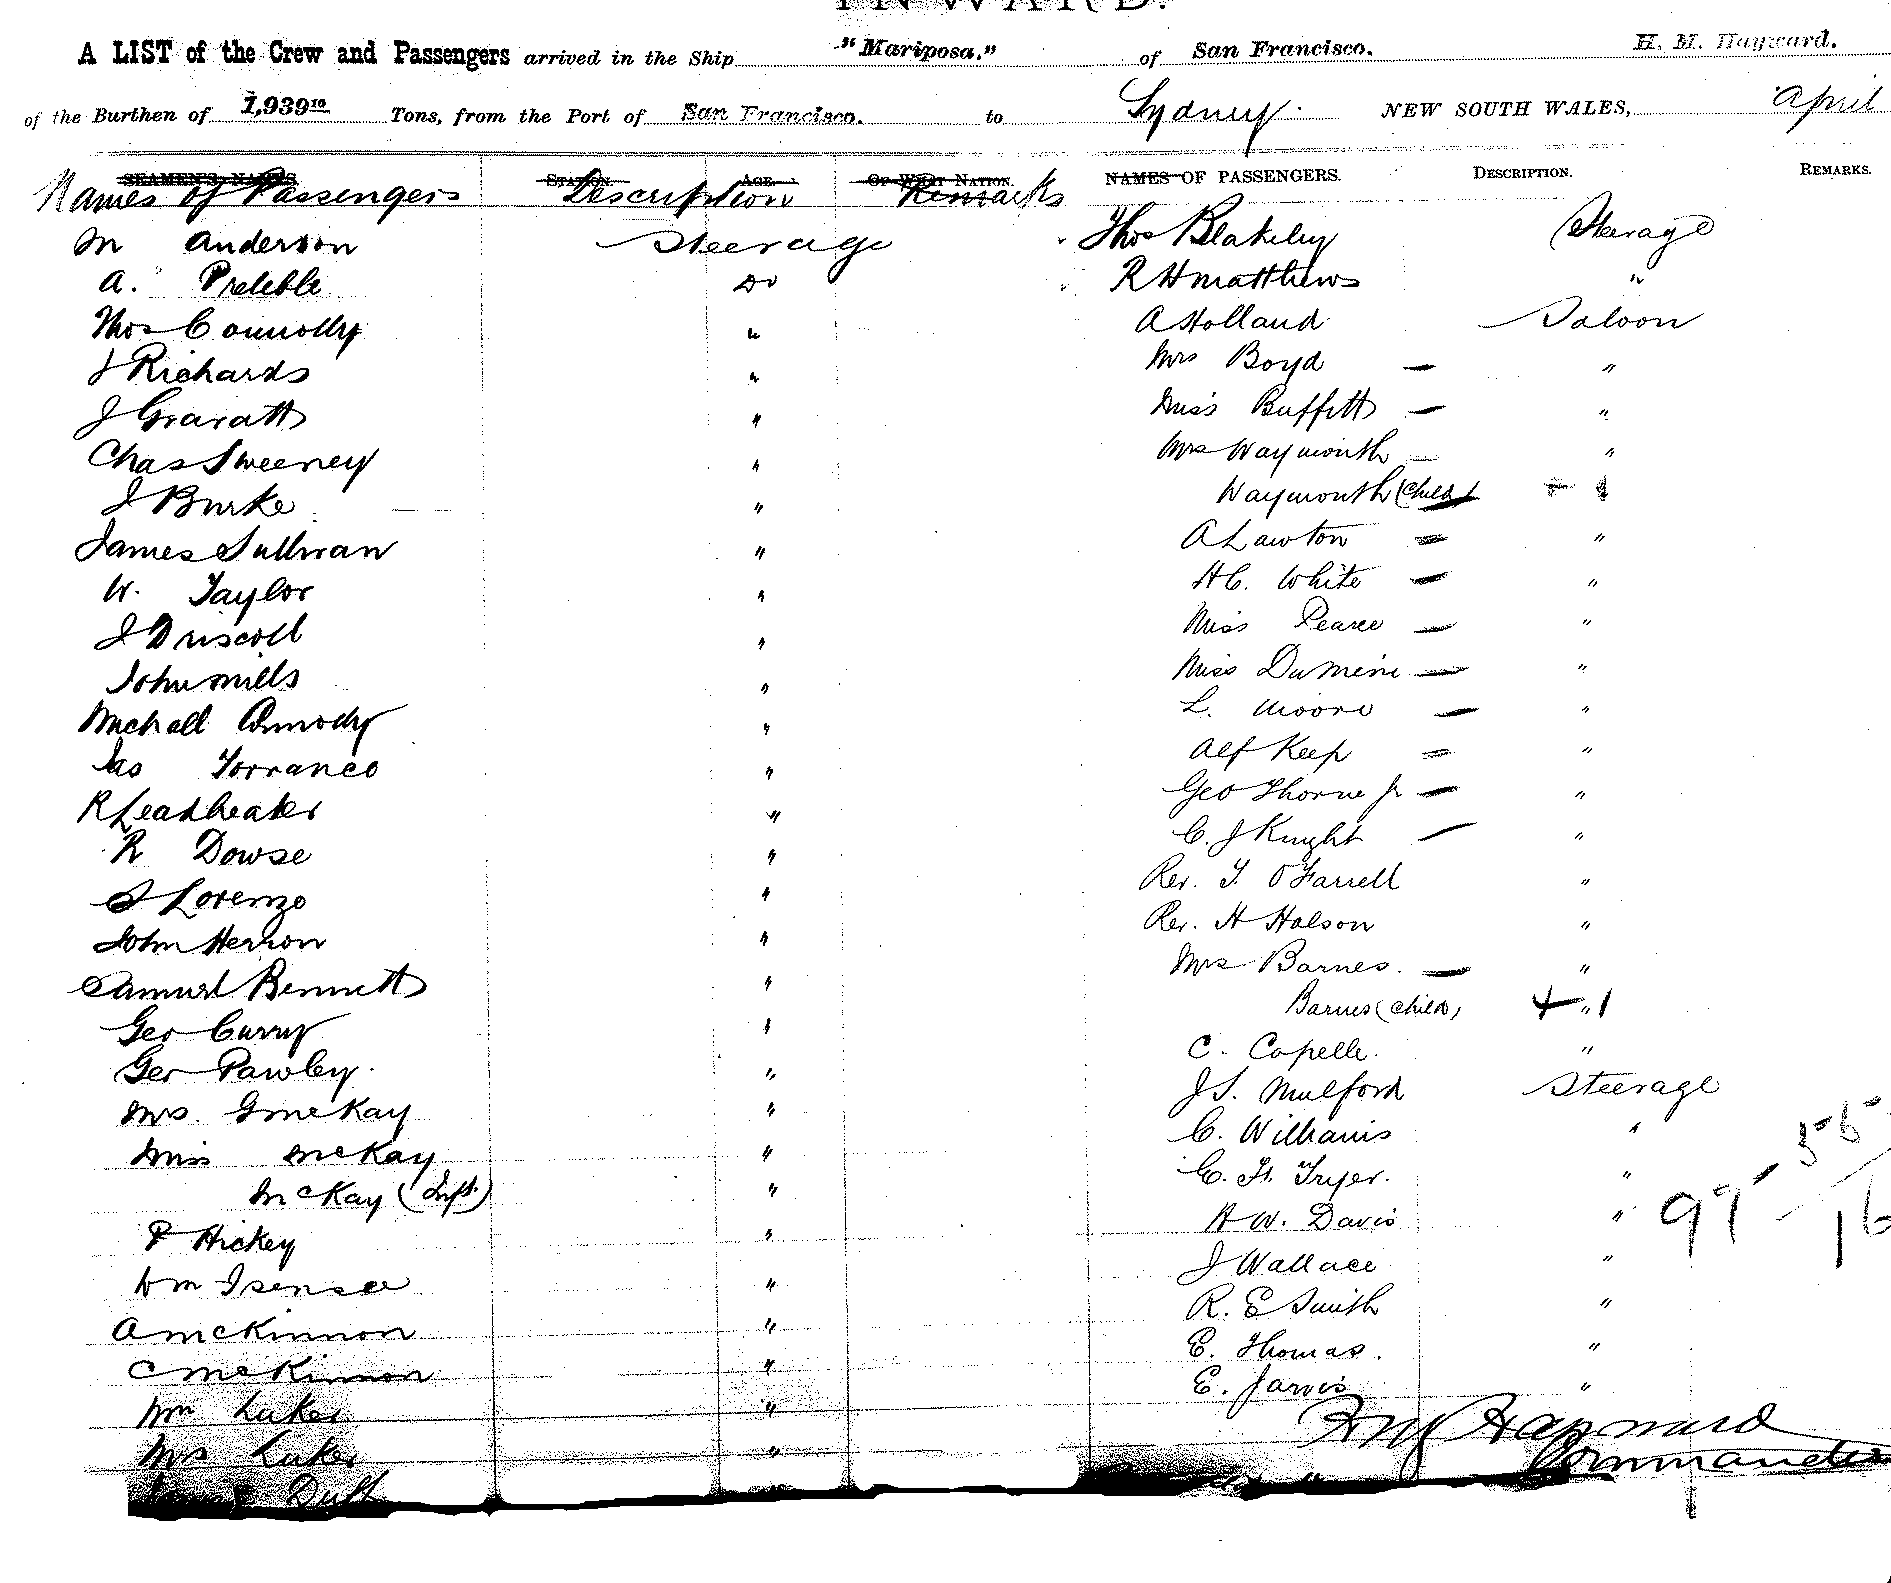 INWARD.
A LIST of the Crew and Passengers arrived in the Ship "Mariposa." of San Francisco. H. M. Hayward.
of the Burthen of 1,939 10 Tons, from the Port of San Francisco. to Sydney. NEW SOUTH WALES, April
SEAMEN'S NAMES STATION AGE. OF WHAT NATION. NAMES OF PASSENGERS. DESCRIPTION. REMARKS.
Names of Passengers Description Remarks
M Anderson Steerage
A. Prebble Do
Thos Connolly "
J Richards "
J Gravatt "
Chas Sweeney "
J Burke "
James Sullivan "
W. Taylor "
J Driscoll "
John Mills "
Michall Ormody "
Jas Torrance "
R Leadbeater "
R Dowse "
J Lorenzo "
John Herron "
Samuel Bennett "
Geo Curry "
Geo Pawley "
Mrs. G McKay "
Miss McKay "
McKay (Inft.) "
P Hickey "
Wm Isensee "
A McKinnon "
C McKinnon "
Wm Luker "
Mrs Luker "
Duff
Thos Blakeley Steerage
R H Matthews "
A Holland Saloon
Mrs Boyd — "
Miss Buffett — "
Mrs Waymouth — "
Waymouth (Child) + 1
A Lawton = "
H C. White — "
Miss Pearce — "
Miss DuMeine — "
L. Moore — "
Alf Keep = "
Geo Thorne Jr — "
C. J Knight — "
Rev. T. O'Farrell "
Rev. H Halson "
Mrs Barnes. — "
Barnes (Child) + " 1
C. Capelle. "
J S. Mulford Steerage
C. Williams "
C. H. Tryer. "
H W. Davis "
J Wallace "
R. E Smith "
E. Thomas. "
E. Jarvis "
97 - 16
H M Hayward
Commander